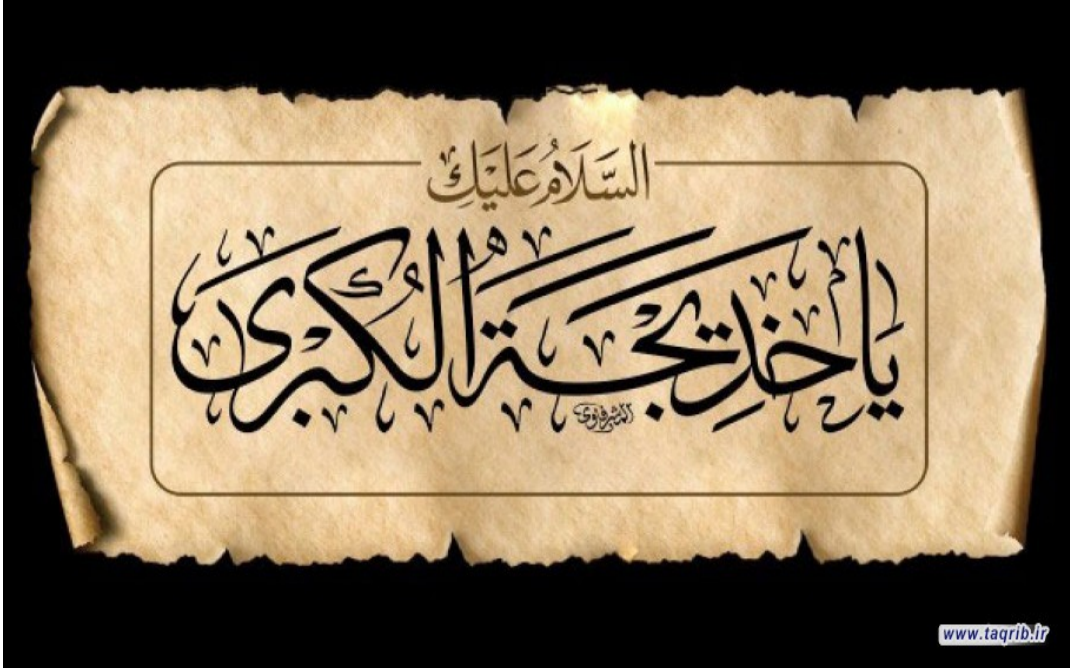 السَّلَامُ عَلَيْكِ
يَا خَدِيجَةَ الْكُبْرَى
الشرفاوي
www.taqrib.ir